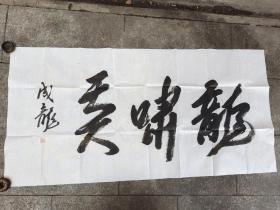 龍嘯天
成龍